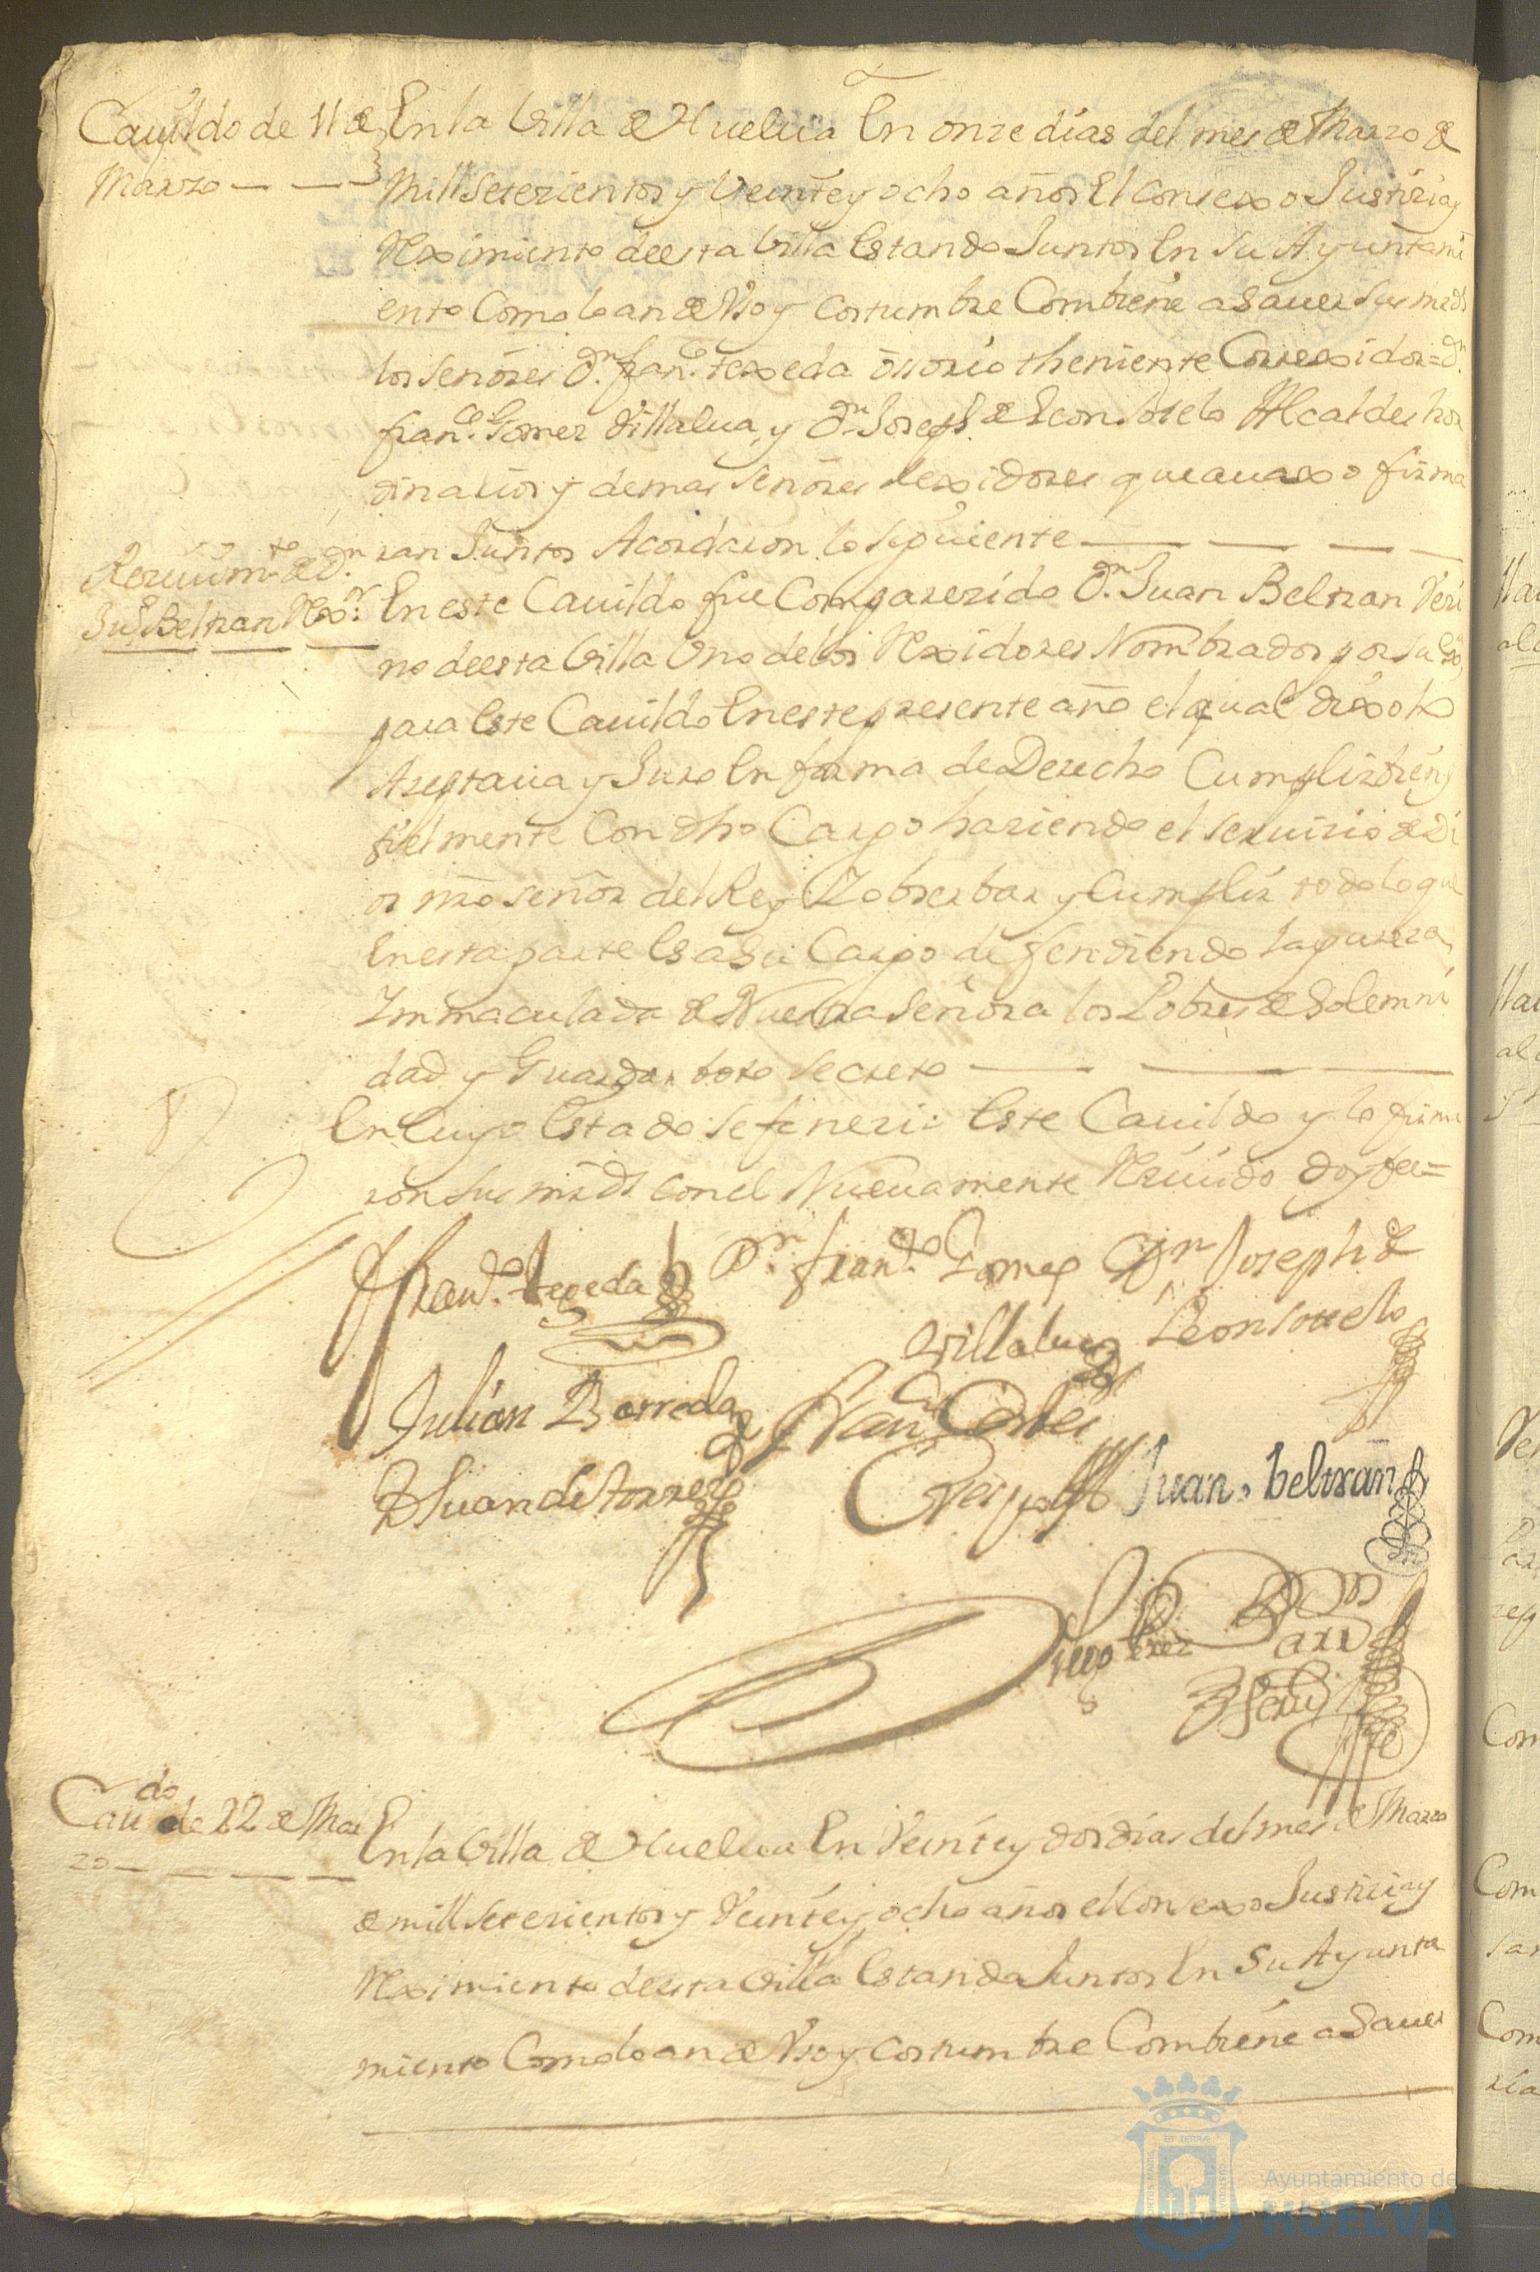 Cauildo de 11 de
Marzo
En la Villa de Huelua En onze dias del mes de Marzo de
mill setezientos y Veinte y ocho años El Consexo Justizia y
Reximiento de esta Villa Estando Juntos En su Ayuntami
ento Como lo an de Vso y costumbre Combiene a Sauer sus mrds
los señores Dn. franco. texeda ossorio theniente Correxidor = Dn.
franco. Gomez Villalua, y Dn. Joseph de Leon Sotelo Alcaldes hor
dinarios y demas señores Rexidores que auaxo firma
ran Juntos Acordaron lo siguiente
Reziuimto. de Dn.
Jun. Beltran Rexor.
En este Cauildo fue Comparezido Dn. Juan Beltran Vezi
no de esta Villa Uno de los Rexidores Nombrados por su Exa.
para Este Cauildo En este presente año el qual dixo lo
Azeptaua y Juro En forma de Derecho Cumplir bien y
fielmente Con dho Cargo haziendo el seruizio de Di
os nro señor del Rey Y obserbar y Cumplir todo lo que
En esta parte Es a Su Cargo defendiendo la pureza
Immaculada de Nuestra Señora los Pobres de Solemni
dad y Guardar boto secreto
En Cuyo Estado se fenezio Este Cauildo y lo firma
ron sus mrds con el Nueuamente Reziuido doy fee =
Franco. texeda
Dn. franco. Gomez
Villalua
Dn Joseph de
Leon Sotelo
Julian Borreda
Franco Cortes
Crespo
D Juan de torres
Juan beltran
Diego Perez
Caudo de 22 de Mar
zo
En la Villa de Huelua En Veinte y dos dias del mes de Marzo
de mill setezientos y Veinte y ocho años el Consexo Justizia y
Reximiento de esta Villa Estando Juntos En su Ayunta
miento Como lo an de Vso y costumbre Combiene a Sauer
Ayuntamiento de
HUELVA